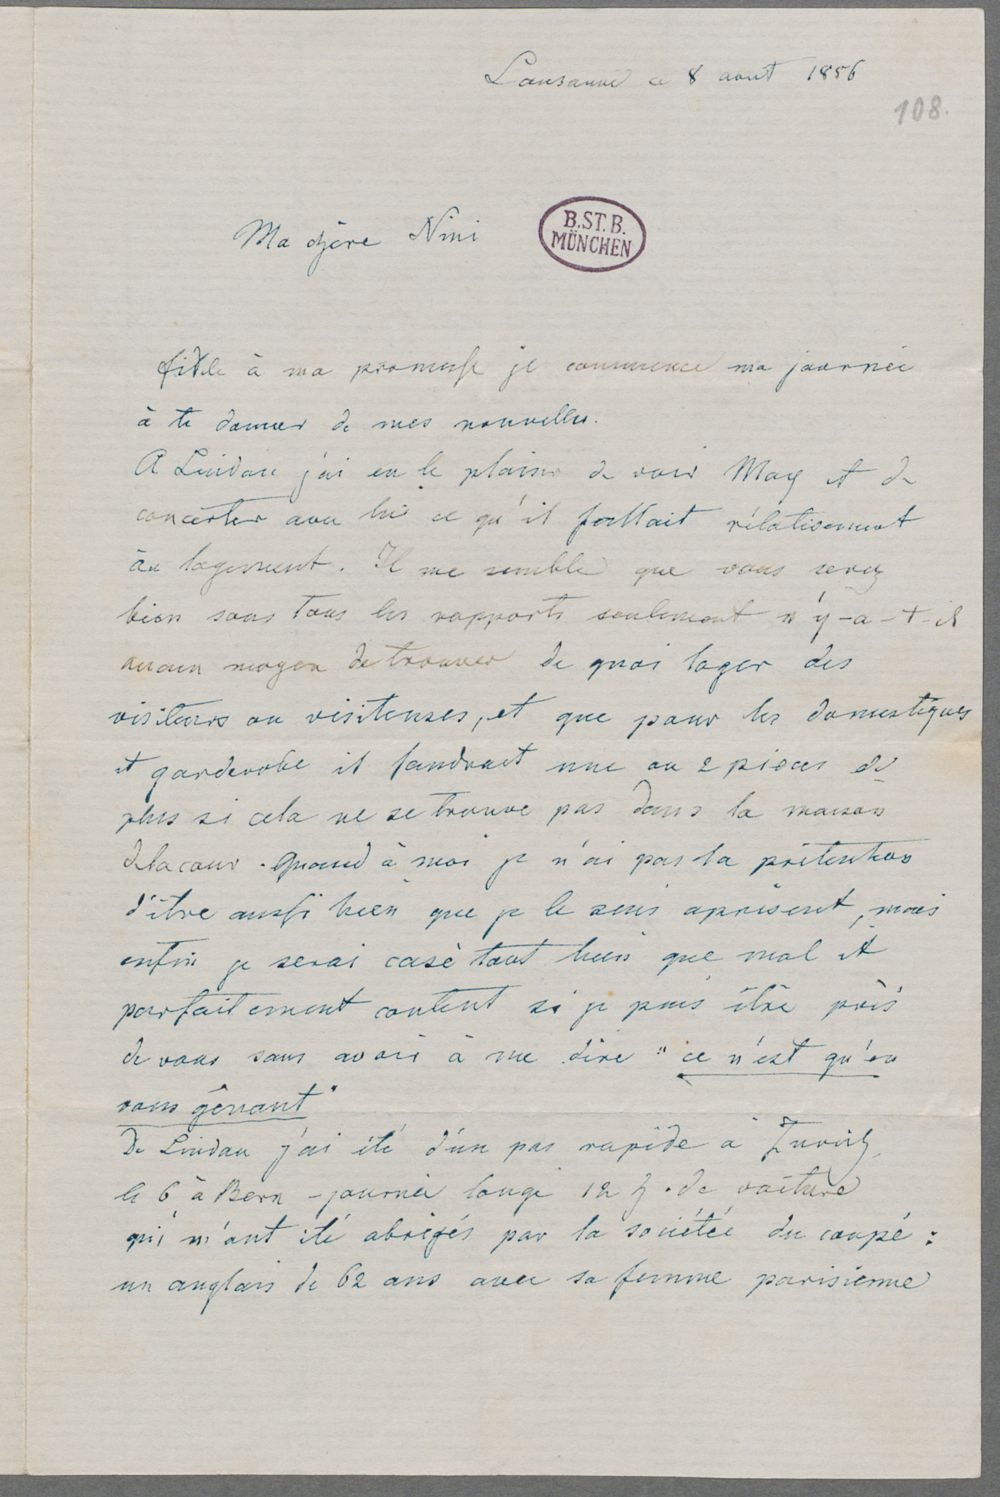 Lausanne ce 8 aout 1856
108.
Ma chère Nini
B.ST.B.
MÜNCHEN
fidèle à ma promesse je commence ma journée
à te donner de mes nouvelles.
A Lindau j'ai eu le plaisir de voir Max et de
concerter avec lui ce qu'il fallait rélativement
àu logement. Il me semble que vous serez
bien sous tous les rapports seulement n'y-a-t-il
aucun moyen de trouver de quoi loger des
visiteurs ou visiteuses, et que pour les domestiques
et garderobe il faudrait une ou 2 pièces de
plus si cela ne se trouve pas dans la maison
de la cour. Quand à moi je n'ai pas la prétention
d'être aussi bien que je le suis aprésent, mais
enfin je serai casé tout bien que mal et
parfaitement content si je puis être près
de vous sans avoir à me dire "ce n'est qu'en
vous gênant"
De Lindau j'ai été d'un pas rapide à Zurich,
le 6 à Bern - journée longe 12 h. de voiture
qui m'ont été abrégés par la sociétée du coupé :
un anglais de 62 ans avec sa femme parisienne